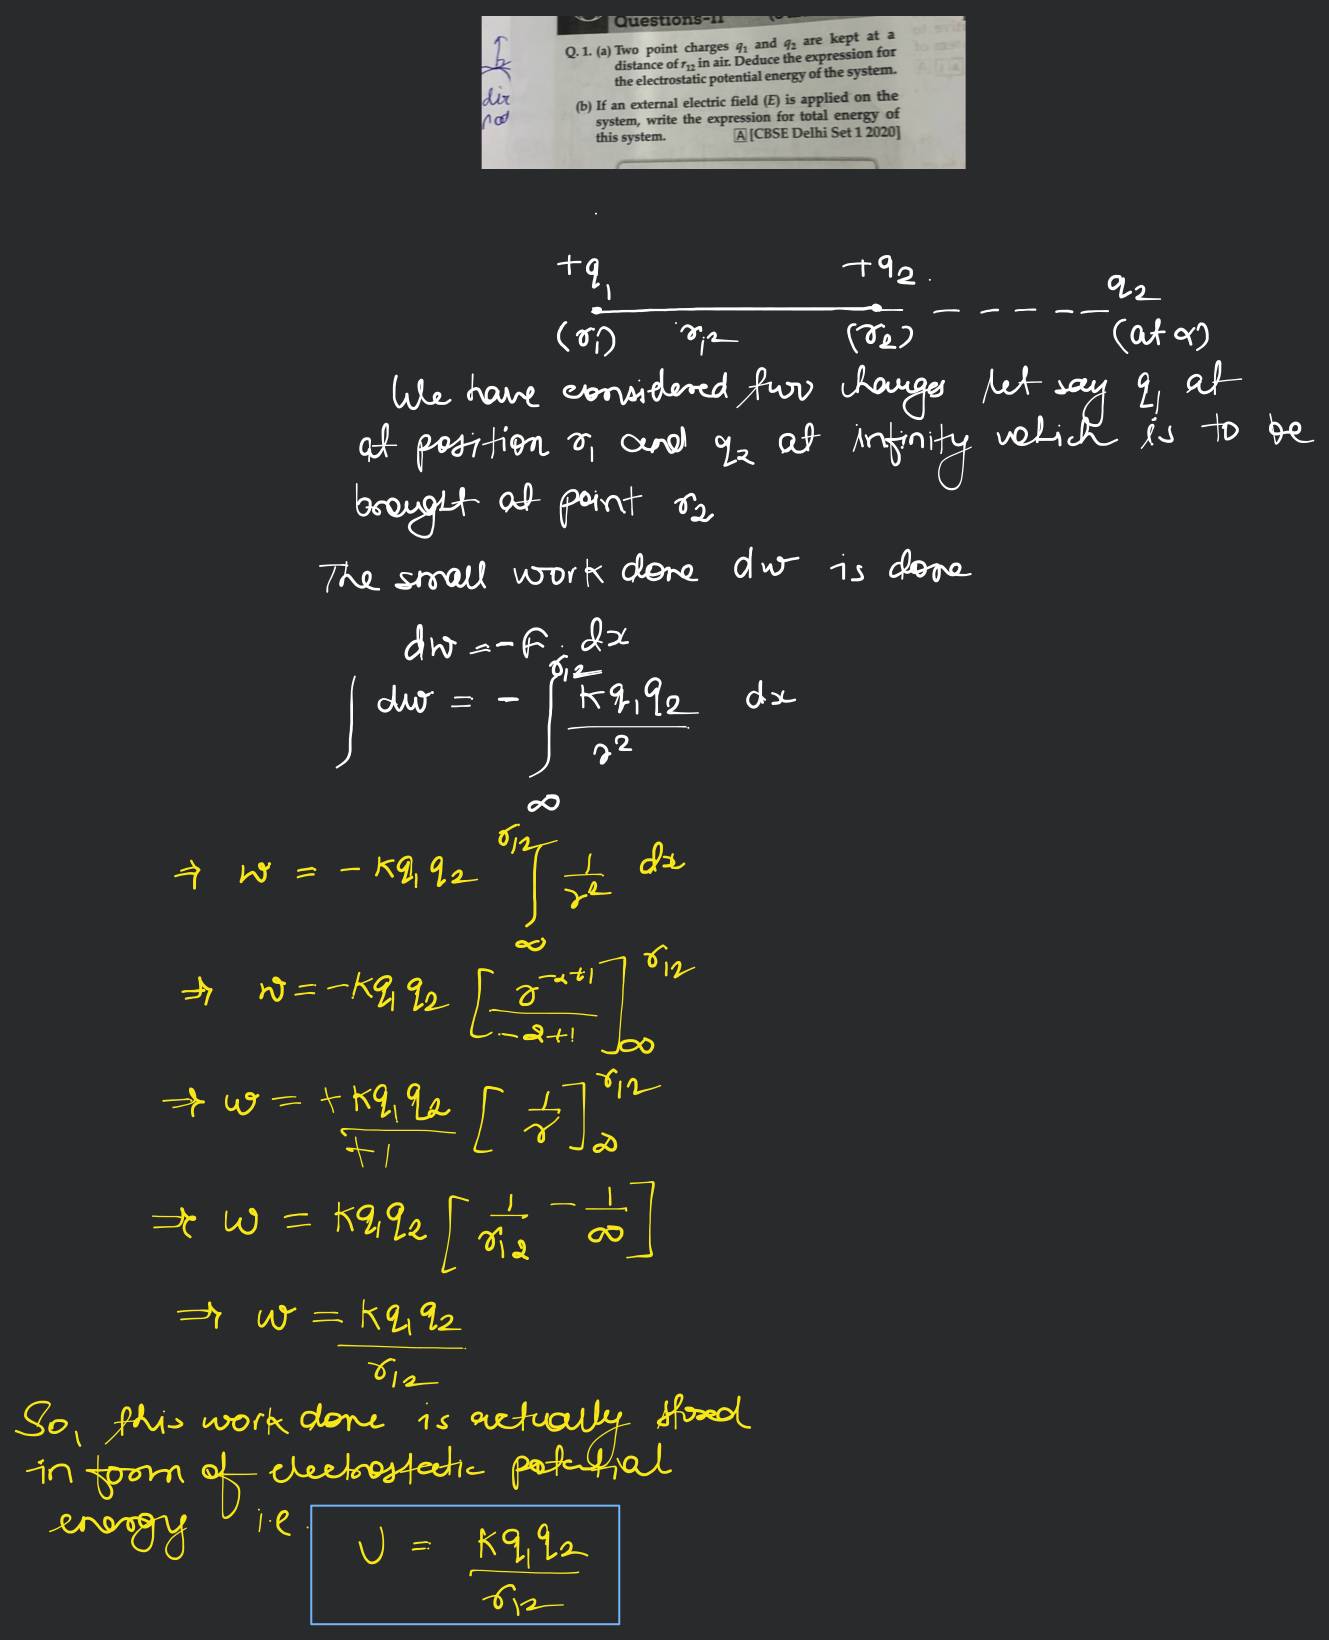 Questions-II
Q. 1. (a) Two point charges q₁ and q₂ are kept at a
distance of r₁₂ in air. Deduce the expression for
the electrostatic potential energy of the system.
(b) If an external electric field (E) is applied on the
system, write the expression for total energy of
this system. A [CBSE Delhi Set 1 2020]
dir
+q₁ +q₂ q₂
(r₁) r₁₂ (r₂) (at ∝)
We have considered two charges let say q₁ at
at position r₁ and q₂ at infinity which is to be
brought at point r₂
The small work done dw is done
dw = -F. dx
∫ dw = - ∫_∞^r₁₂ kq₁q₂/r² dx
⇒ w = - kq₁q₂ ∫_∞^r₁₂ 1/r² dx
⇒ w = -kq₁q₂ [r^(-2+1)/(-2+1)]_∞^r₁₂
⇒ w = +kq₁q₂/+1 [1/r]_∞^r₁₂
⇒ w = kq₁q₂ [1/r₁₂ - 1/∞]
⇒ w = kq₁q₂/r₁₂
So, this work done is actually stored
in form of electrostatic potential
energy i.e.
U = kq₁q₂/r₁₂